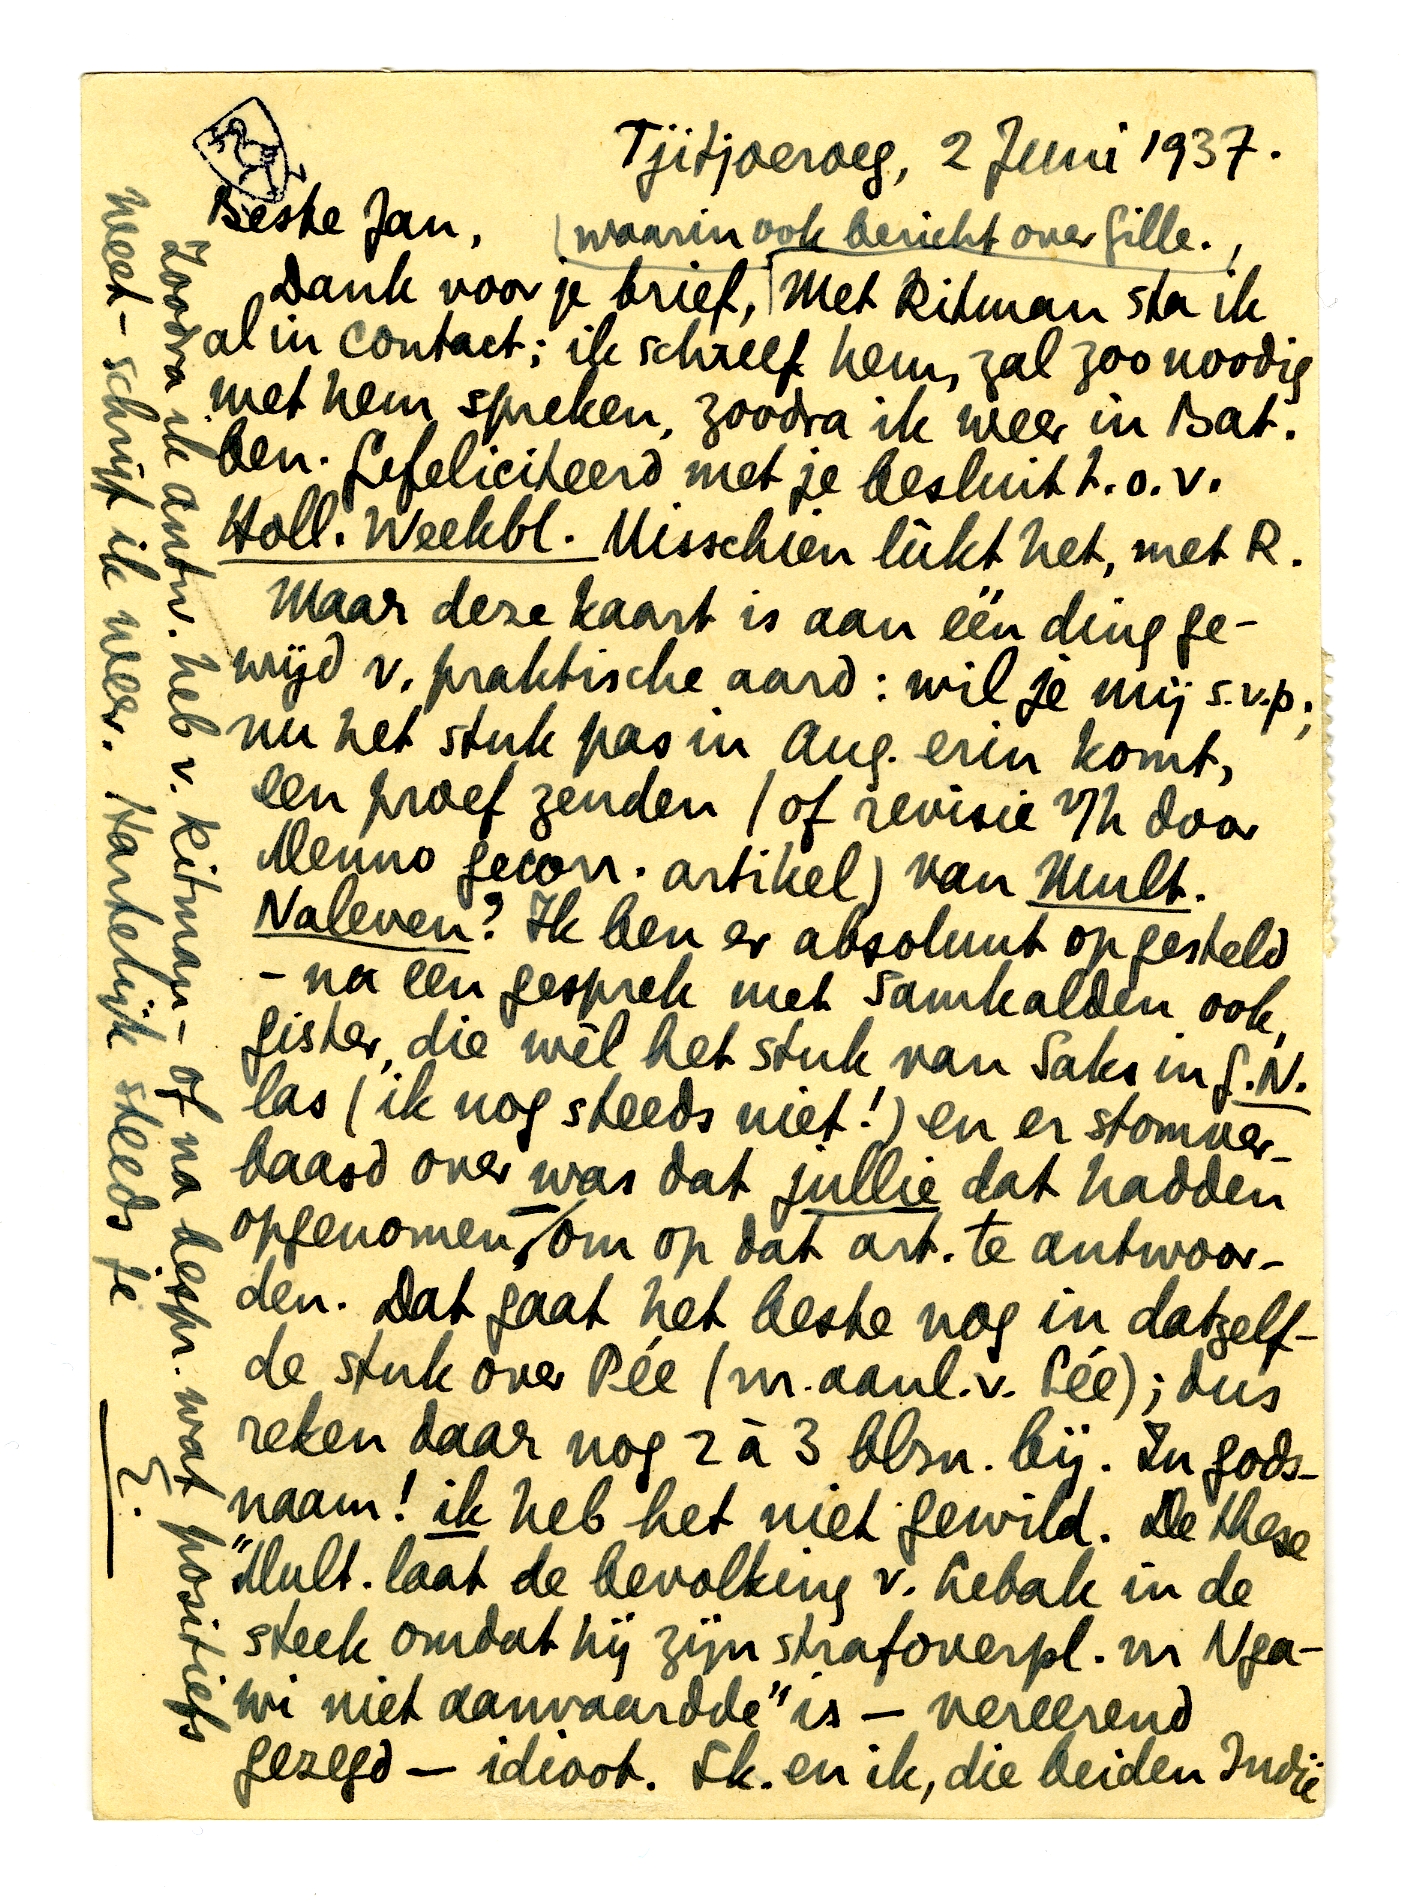 Tjitjoeroeg, 2 Juni 1937.
Beste Jan,
(waarin ook bericht over Gille.,
Dank voor je brief, Met Ritman sta ik
al in contact; ik schreef hem, zal zoo noodig
met hem spreken, zoodra ik weer in Bat.
ben. Gefeliciteerd met je besluit t.o.v.
Holl. Weekbl. Misschien lùkt het, met R.
Maar deze kaart is aan één ding ge-
wijd v. praktische aard: wil je mij s.v.p.,
nu het stuk pas in Aug. erin komt,
een proef zenden (of revisie v/h door
Menno gecorr. artikel) van Mult.
Naleven? Ik ben er absoluut op gesteld
- na een gesprek met Samkalden ook,
gister, die wèl het stuk van Saks in G.N.
las (ik nog steeds niet!) en er stomver-
baasd over was dat jullie dat hadden
opgenomen - om op dat art. te antwoor-
den. Dat gaat het beste nog in datzelf-
de stuk over Pée (n.aanl.v. Pée); dus
reken daar nog 2 à 3 blzn. bij. In gods-
naam! ik heb het niet gewild. De these
"Mult. laat de bevolking v. Lebak in de
steek omdat hij zijn strafoverpl. nr Nga-
wi niet aanvaardde" is — vereerend
gezegd — idioot. Sk. en ik, die beiden Indië
Zoodra ik antw. heb v. Ritman - of na bespr. wat positiefs
weet - schrijf ik weer. Hartelijk steeds je
E.